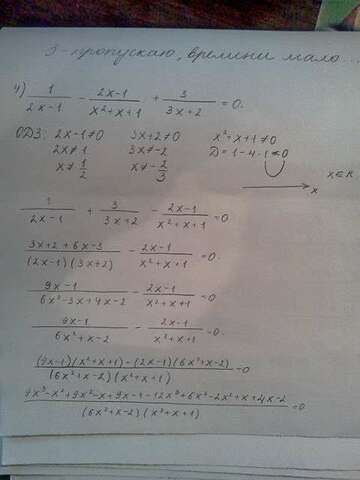 3-пропускаю, времени мало...
4) 1/(2x-1) - (2x-1)/(x²+x+1) + 3/(3x+2) = 0.
ОДЗ: 2x-1≠0 3x+2≠0 x²+x+1≠0
2x≠1 3x≠-2 D=1-4·1<0
x≠1/2 x≠-2/3 x∈R
x
1/(2x-1) + 3/(3x+2) - (2x-1)/(x²+x+1) =0
(3x+2+6x-3)/((2x-1)(3x+2)) - (2x-1)/(x²+x+1) =0.
(9x-1)/(6x²-3x+4x-2) - (2x-1)/(x²+x+1) =0
(9x-1)/(6x²+x-2) - (2x-1)/(x²+x+1) =0.
((9x-1)(x²+x+1)-(2x-1)(6x²+x-2))/((6x²+x-2)(x²+x+1)) =0
(9x³-x²+9x²-x+9x-1-12x³+6x²-2x²+x+4x-2)/((6x²+x-2)(x²+x+1)) =0